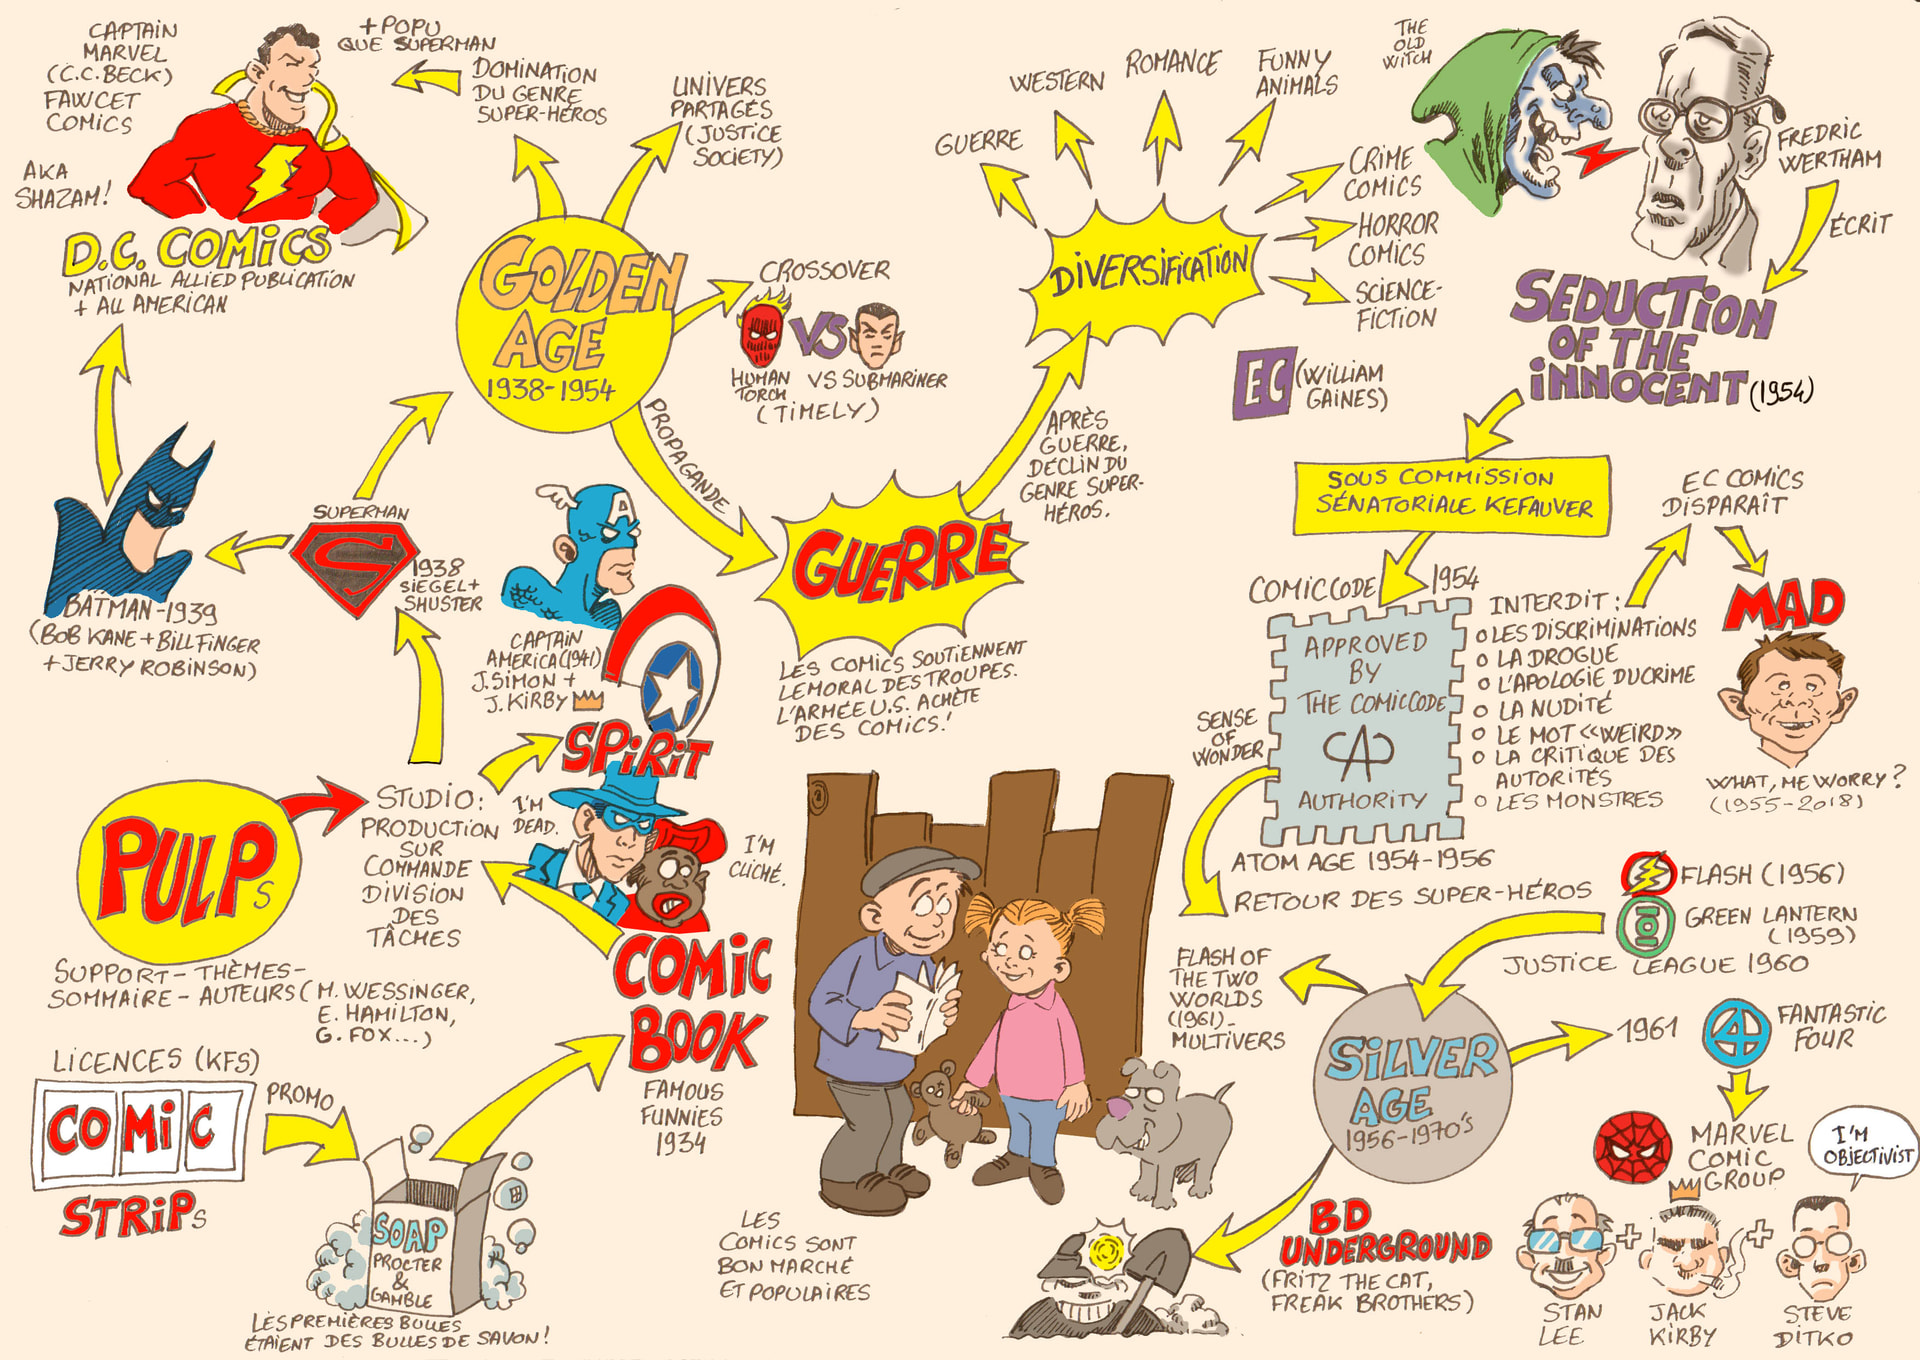 CAPTAIN
MARVEL
(C.C. BECK)
FAWCET
COMICS
AKA
SHAZAM!
+ POPU
QUE SUPERMAN
DOMINATION
DU GENRE
SUPER-HÉROS
D.C. COMICS
NATIONAL ALLIED PUBLICATION
+ ALL AMERICAN
UNIVERS
PARTAGÉS
(JUSTICE
SOCIETY)
GOLDEN
AGE
1938-1954
CROSSOVER
VS
HUMAN
TORCH
VS SUBMARINER
(TIMELY)
PROPAGANDE
GUERRE
WESTERN
ROMANCE
FUNNY
ANIMALS
CRIME
COMICS
HORROR
COMICS
SCIENCE-
FICTION
DIVERSIFICATION
EC
(WILLIAM
GAINES)
APRÈS
GUERRE,
DÉCLIN DU
GENRE SUPER-
HÉROS.
THE
OLD
WITCH
FREDRIC
WERTHAM
ÉCRIT
SEDUCTION
OF THE
INNOCENT
(1954)
SOUS COMMISSION
SÉNATORIALE KEFAUVER
EC COMICS
DISPARAÎT
MAD
WHAT, ME WORRY?
(1955-2018)
BATMAN-1939
(BOB KANE + BILL FINGER
+ JERRY ROBINSON)
SUPERMAN
S
1938
SIEGEL +
SHUSTER
A
CAPTAIN
AMERICA (1941)
J. SIMON +
J. KIRBY
GUERRE
LES COMICS SOUTIENNENT
LE MORAL DES TROUPES.
L'ARMÉE U.S. ACHÈTE
DES COMICS!
COMIC CODE
1954
APPROVED
BY
THE COMIC CODE
CA
AUTHORITY
INTERDIT :
O LES DISCRIMINATIONS
O LA DROGUE
O L'APOLOGIE DU CRIME
O LA NUDITÉ
O LE MOT «WEIRD»
O LA CRITIQUE DES
AUTORITÉS
O LES MONSTRES
SENSE
OF
WONDER
ATOM AGE 1954-1956
RETOUR DES SUPER-HÉROS
FLASH (1956)
GREEN LANTERN
(1959)
JUSTICE LEAGUE 1960
SPIRIT
I'M
DEAD.
I'M
CLICHÉ.
PULPs
STUDIO:
PRODUCTION
SUR
COMMANDE
DIVISION
DES
TÂCHES
SUPPORT - THÈMES -
SOMMAIRE - AUTEURS (M. WESSINGER,
E. HAMILTON,
G. FOX...)
COMIC
BOOK
FAMOUS
FUNNIES
1934
LICENCES (KFS)
COMIC
STRIPs
PROMO
SOAP
PROCTER
&
GAMBLE
LES PREMIÈRES BULLES
ÉTAIENT DES BULLES DE SAVON!
LES
COMICS SONT
BON MARCHÉ
ET POPULAIRES
FLASH OF
THE TWO
WORLDS
(1961)-
MULTIVERS
SILVER
AGE
1956-1970's
1961
4
FANTASTIC
FOUR
MARVEL
COMIC
GROUP
I'M
OBJECTIVIST
BD
UNDERGROUND
(FRITZ THE CAT,
FREAK BROTHERS)
+ +
STAN
LEE
JACK
KIRBY
STEVE
DITKO